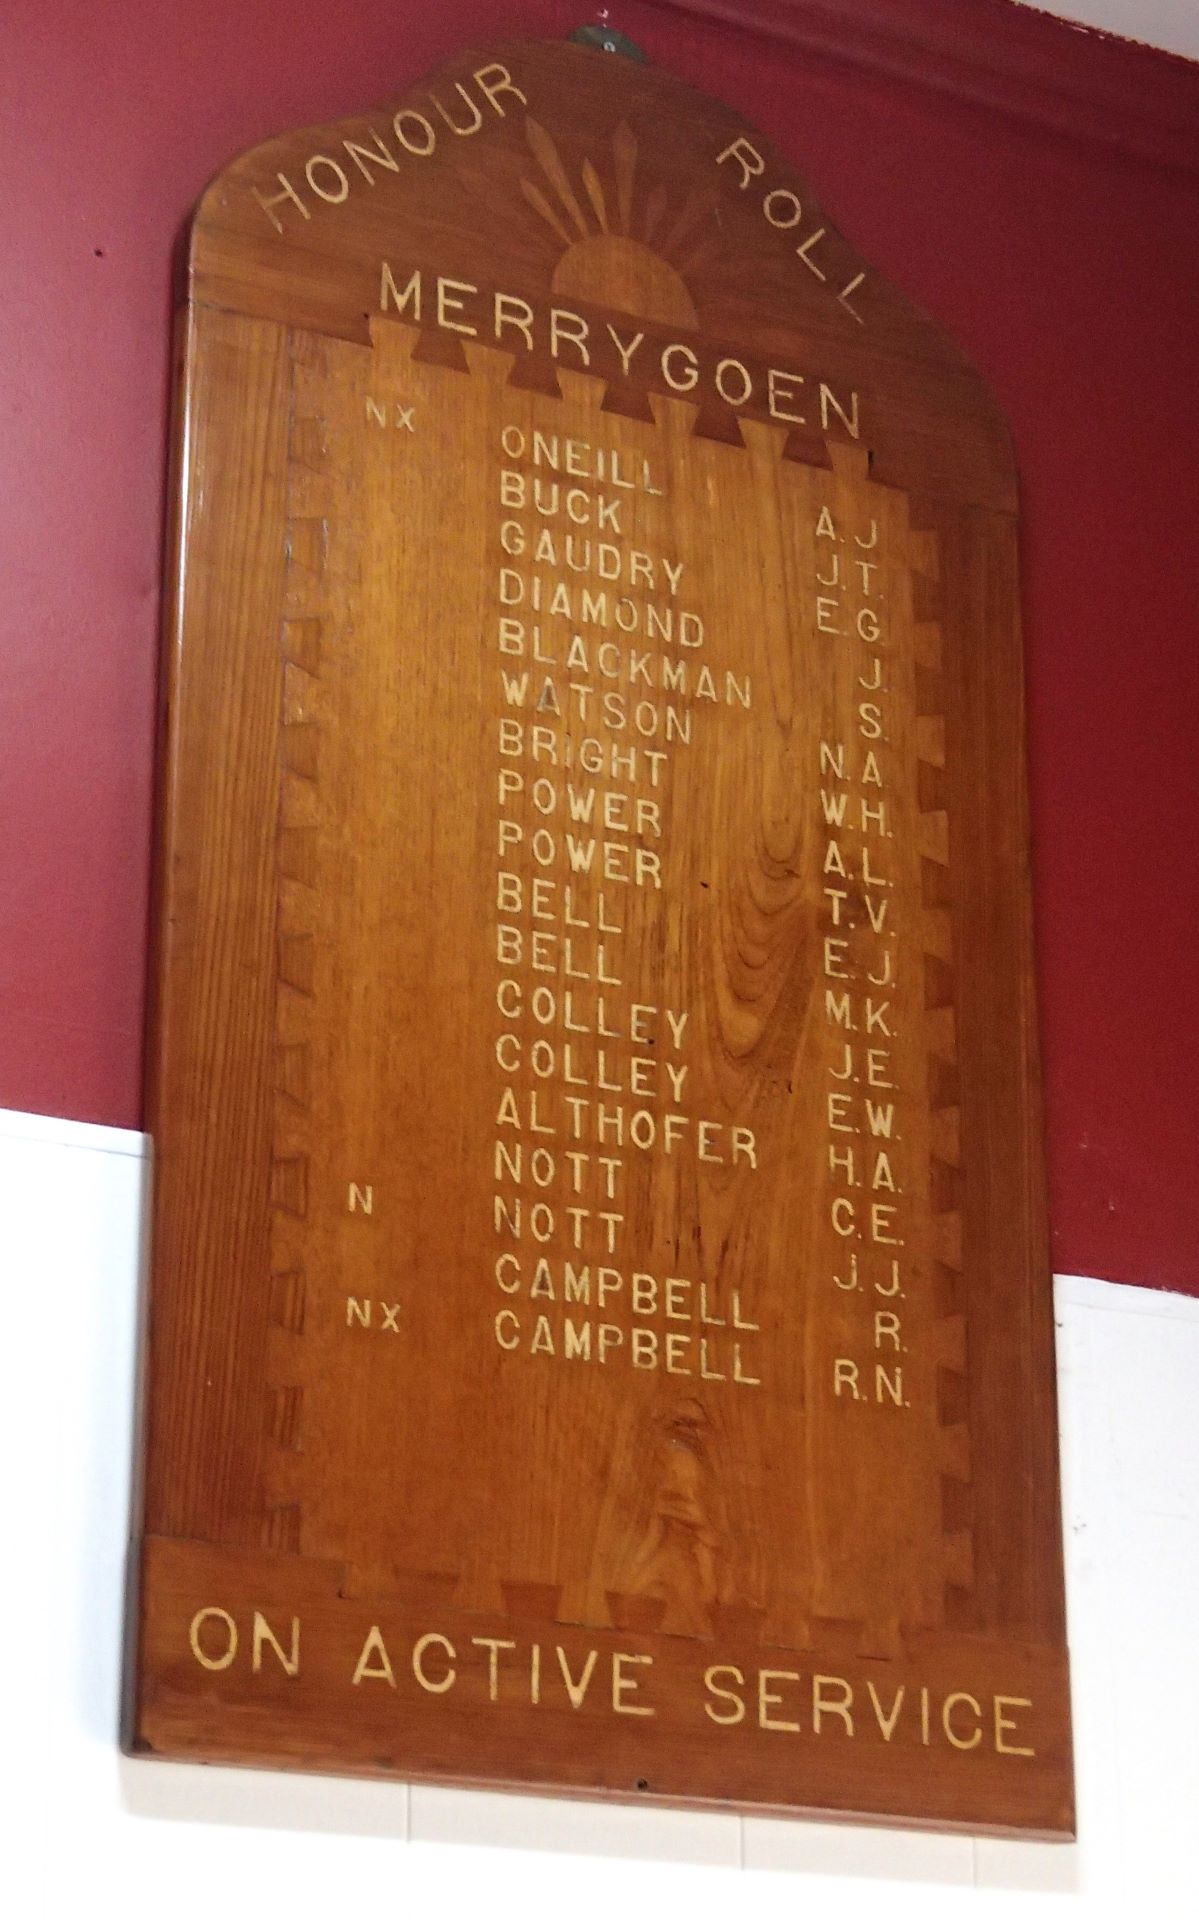 HONOUR ROLL
MERRYGOEN
NX ONEILL A.J
BUCK J.T.
GAUDRY E.G
DIAMOND J.
BLACKMAN S.
WATSON N.A
BRIGHT W.H.
POWER A.L.
POWER T.V.
BELL E.J.
BELL M.K.
COLLEY J.E.
COLLEY E.W.
ALTHOFER H.A.
NOTT C.E.
N NOTT J.J.
CAMPBELL R.
NX CAMPBELL R.N.
ON ACTIVE SERVICE